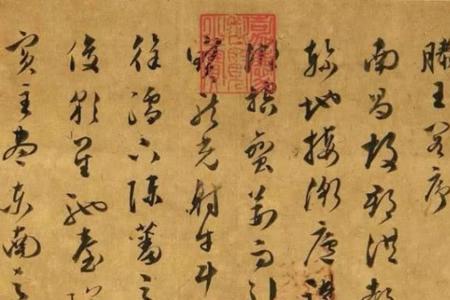 滕王閣序
南昌故郡洪都
軫地接衡廬襟
湖控蠻荊而引
寶龍光射牛斗
徐孺下陳蕃之
俊彩星馳臺隍
賓主盡東南之